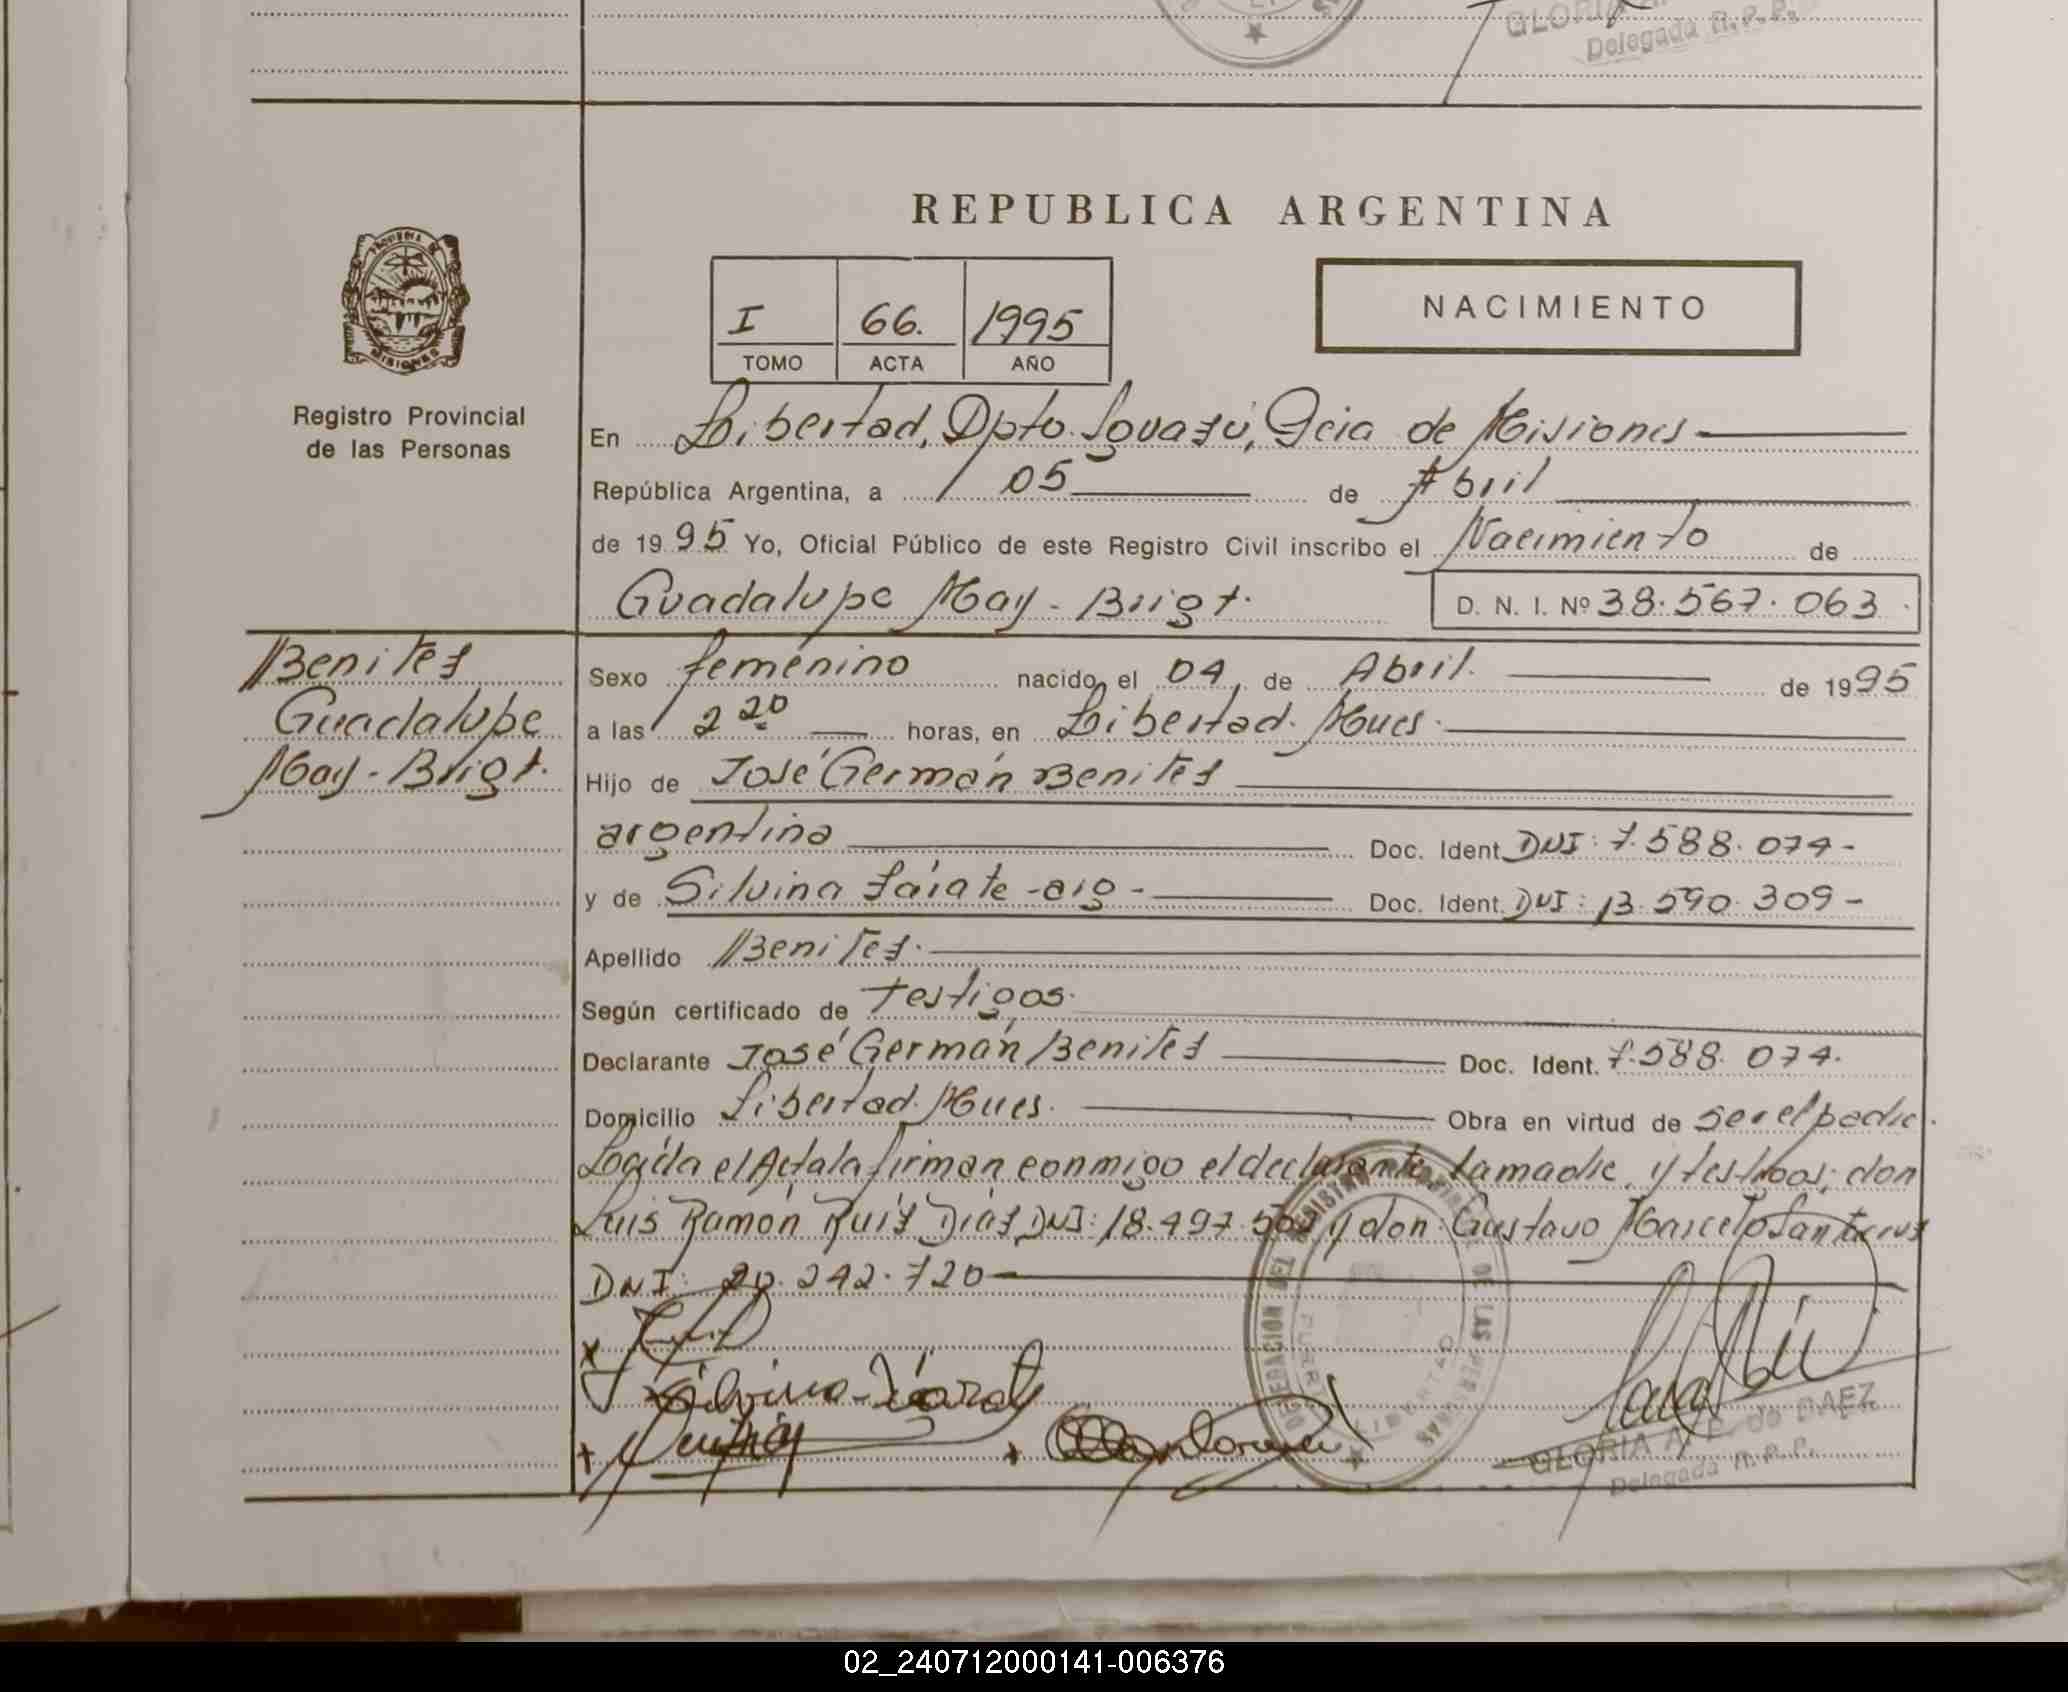 GLORIA A.
Delegada R.P.P.
REPUBLICA ARGENTINA
PROVINCIA DE
MISIONES
Registro Provincial
de las Personas
I 66. 1995
TOMO ACTA AÑO
NACIMIENTO
En Libertad, Dpto. Iguazú, Pcia de Misiones
República Argentina, a 05 de Abril
de 1995 Yo, Oficial Público de este Registro Civil inscribo el Nacimiento de
Guadalupe May-Brigt. D. N. I. Nº 38.567.063.
Benites
Guadalupe
May-Brigt.
Sexo femenino nacido el 04 de Abril. de 1995
a las 2 20 horas, en Libertad. Mnes.
Hijo de José Germán Benites
argentina Doc. Ident. DNI: 7.588.074-
y de Silvina Zárate -arg- Doc. Ident. DNI: 13.590.309-
Apellido Benites.
Según certificado de testigos.
Declarante José Germán Benites Doc. Ident. 7.588.074.
Domicilio Libertad. Mnes. Obra en virtud de ser el padre.
Leída el Acta la firman conmigo el declarante, la madre, y testigos; don
Luis Ramón Ruíz Díaz, DNI: 18.497. y don Gustavo Marcelo Santacruz
DNI: 20.242.720
Silvina Zarate
DELEGACION DEL REGISTRO PROVINCIAL DE LAS PERSONAS
PUERTO LIBERTAD
GLORIA A. P. de BAEZ
Delegada R.P.P.
02_240712000141-006376